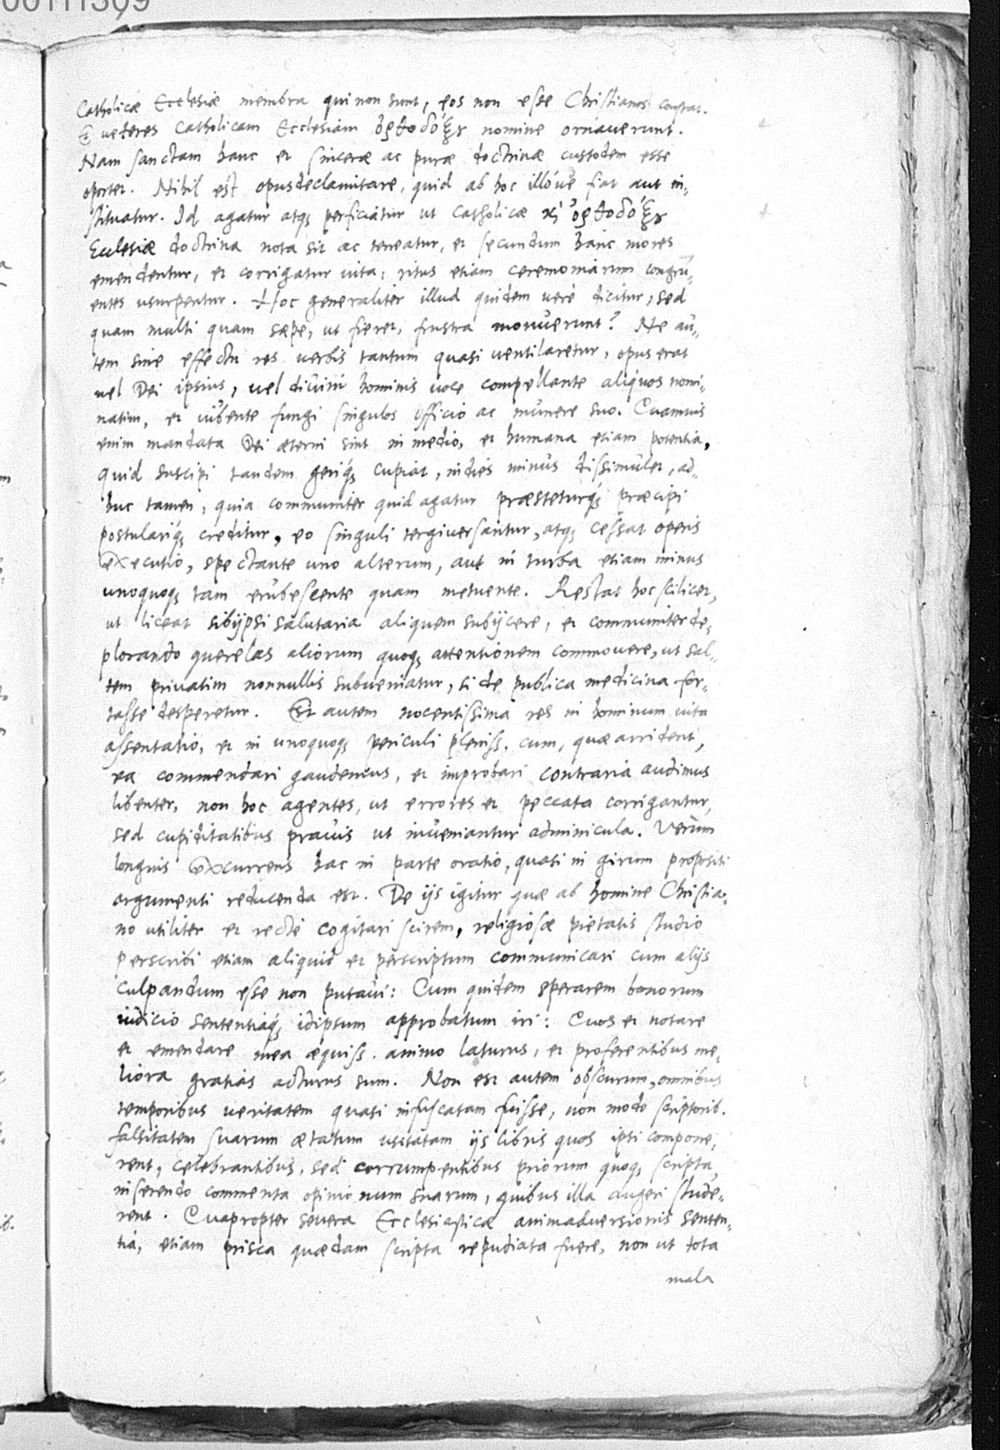 Catholicæ Ecclesiæ membra qui non sunt, eos non esse Christianos constat.
Et veteres Catholicam Ecclesiam ὀρθοδόξȣ nomine ornaverunt.
Nam sanctam hanc et sinceræ ac puræ doctrinæ custodem esse
oportet. Nihil est opus declamitare, quid ab hoc illove fiat aut in-
stituatur. Id agatur atq; perficiatur ut Catholicæ κỳ ὀρθοδόξȣ
Ecclesiæ doctrina nota sit ac teneatur, et secundum hanc mores
emendentur, et corrigatur vita: ritus etiam ceremoniarum congru-
entes usurpentur. Hoc generaliter illud quidem verè dicitur, sed
quam multi quam sæpe, ut fieret, frustra monuerunt? Ne au-
tem sine effectu res verbis tantum quasi ventilaretur, opus erat
vel Dei ipsius, vel divini hominis voce compellante aliquos nomi-
natim, et iubente fungi singulos officio ac munere suo. Quamvis
enim mandata Dei æterni sint in medio, et humana etiam potentia,
quid suscipi tandem geriq; cupiat, indies minus dissimulet, ad-
huc tamen, quia communiter quid agatur præsteturq; præcipi
postulariq; creditur, eo singuli tergiversantur, atq; cessat operis
executio, spectante uno alterum, aut in turba etiam minus
unoquoq; tam erubescente quam metuente. Restat hoc scilicet,
ut liceat sibijpsi salutaria aliquem subijcere, et communiter de-
plorando querelas aliorum quoq; attentionem commovere, ut sal-
tem privatim nonnullis subveniatur, si de publica medicina for-
tasse desperetur. Est autem nocentissima res in hominum vita
assentatio, et in unoquoq; periculi pleniss. cum, quæ arrident,
ea commendari gaudemus, et improbari contraria audimus
libenter, non hoc agentes, ut errores et peccata corrigantur,
sed cupiditatibus pravis ut inveniantur adminicula. Verùm
longius excurrens hac in parte oratio, quasi in girum propositi
argumenti reducenda est. De ijs igitur quæ ab homine Christia-
no utiliter et rectè cogitari scirem, religiosæ pietatis studio
perscribi etiam aliquid et perscriptum communicari cum alijs
culpandum esse non putavi: Cum quidem sperarem bonorum
iudicio sententiaq; idipsum approbatum iri: Quos et notare
et emendare mea æquiss. animo laturus, et proferentibus me-
liora gratias acturus sum. Non est autem obscurum, omnibus
temporibus veritatem quasi infuscatam fuisse, non modo scriptorib.
falsitatem suarum ætatum usitatam ijs libris quos ipsi compone-
rent, celebrantibus, sed corrumpentibus priorum quoq; scripta,
inserendo commenta opinionum suarum, quibus illa augeri stude-
rent. Quapropter severa Ecclesiasticæ animadversionis senten-
tia, etiam prisca quædam scripta repudiata fuere, non ut tota
mala